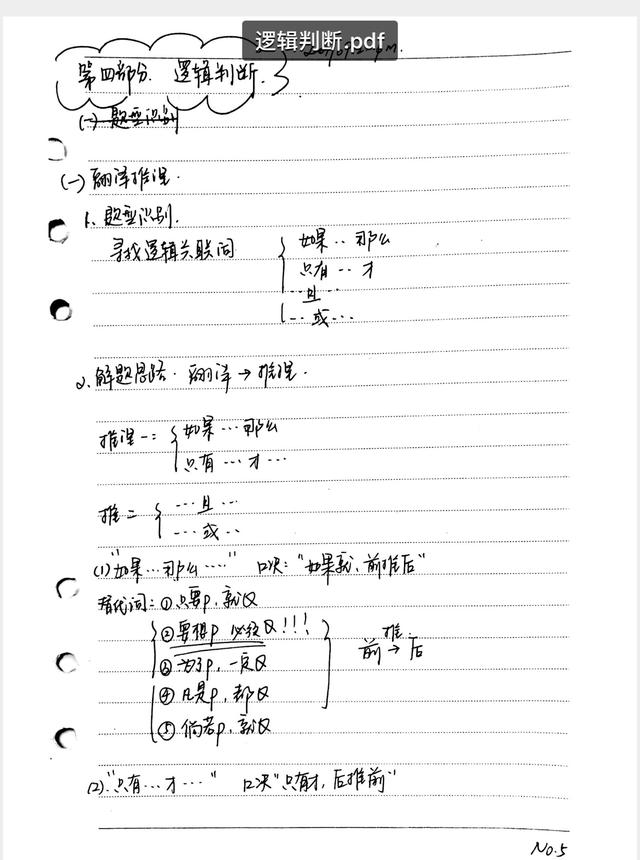 逻辑判断.pdf
第四部分. 逻辑判断.
(一) 题型识别
(一) 翻译推理.
1. 题型识别.
寻找逻辑关联词 { 如果‥那么
只有‥才
…且…
…或…
2. 解题思路. 翻译→推理.
推理一: { 如果…那么
只有…才…
推二 { …且…
…或‥
(1)"如果…那么…" 口决: "如果就, 前推后"
替代词: ①只要p, 就Q
②要想p 必须Q!!!
③为了p, 一定Q
前 推→ 后
④凡是p, 都Q
⑤倘若p, 就Q
(2)."只有…才…" 口决"只有才, 后推前"
No.5